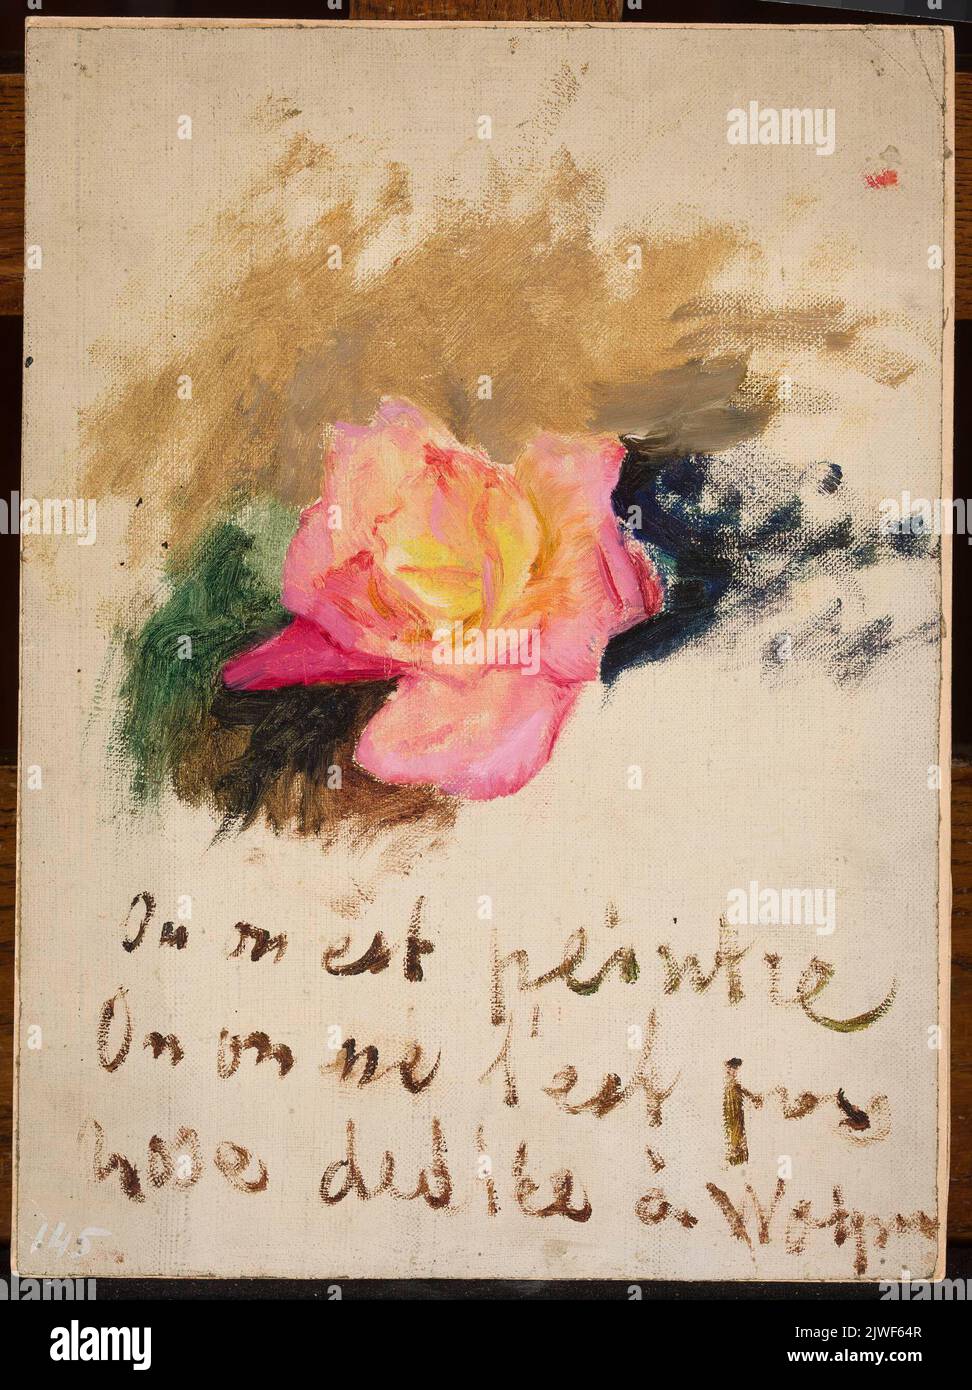 alamy
Ou on est peintre
On on ne l'est pas
Rose dediée à
145
alamy
Image ID: 2JWF64R
www.alamy.com